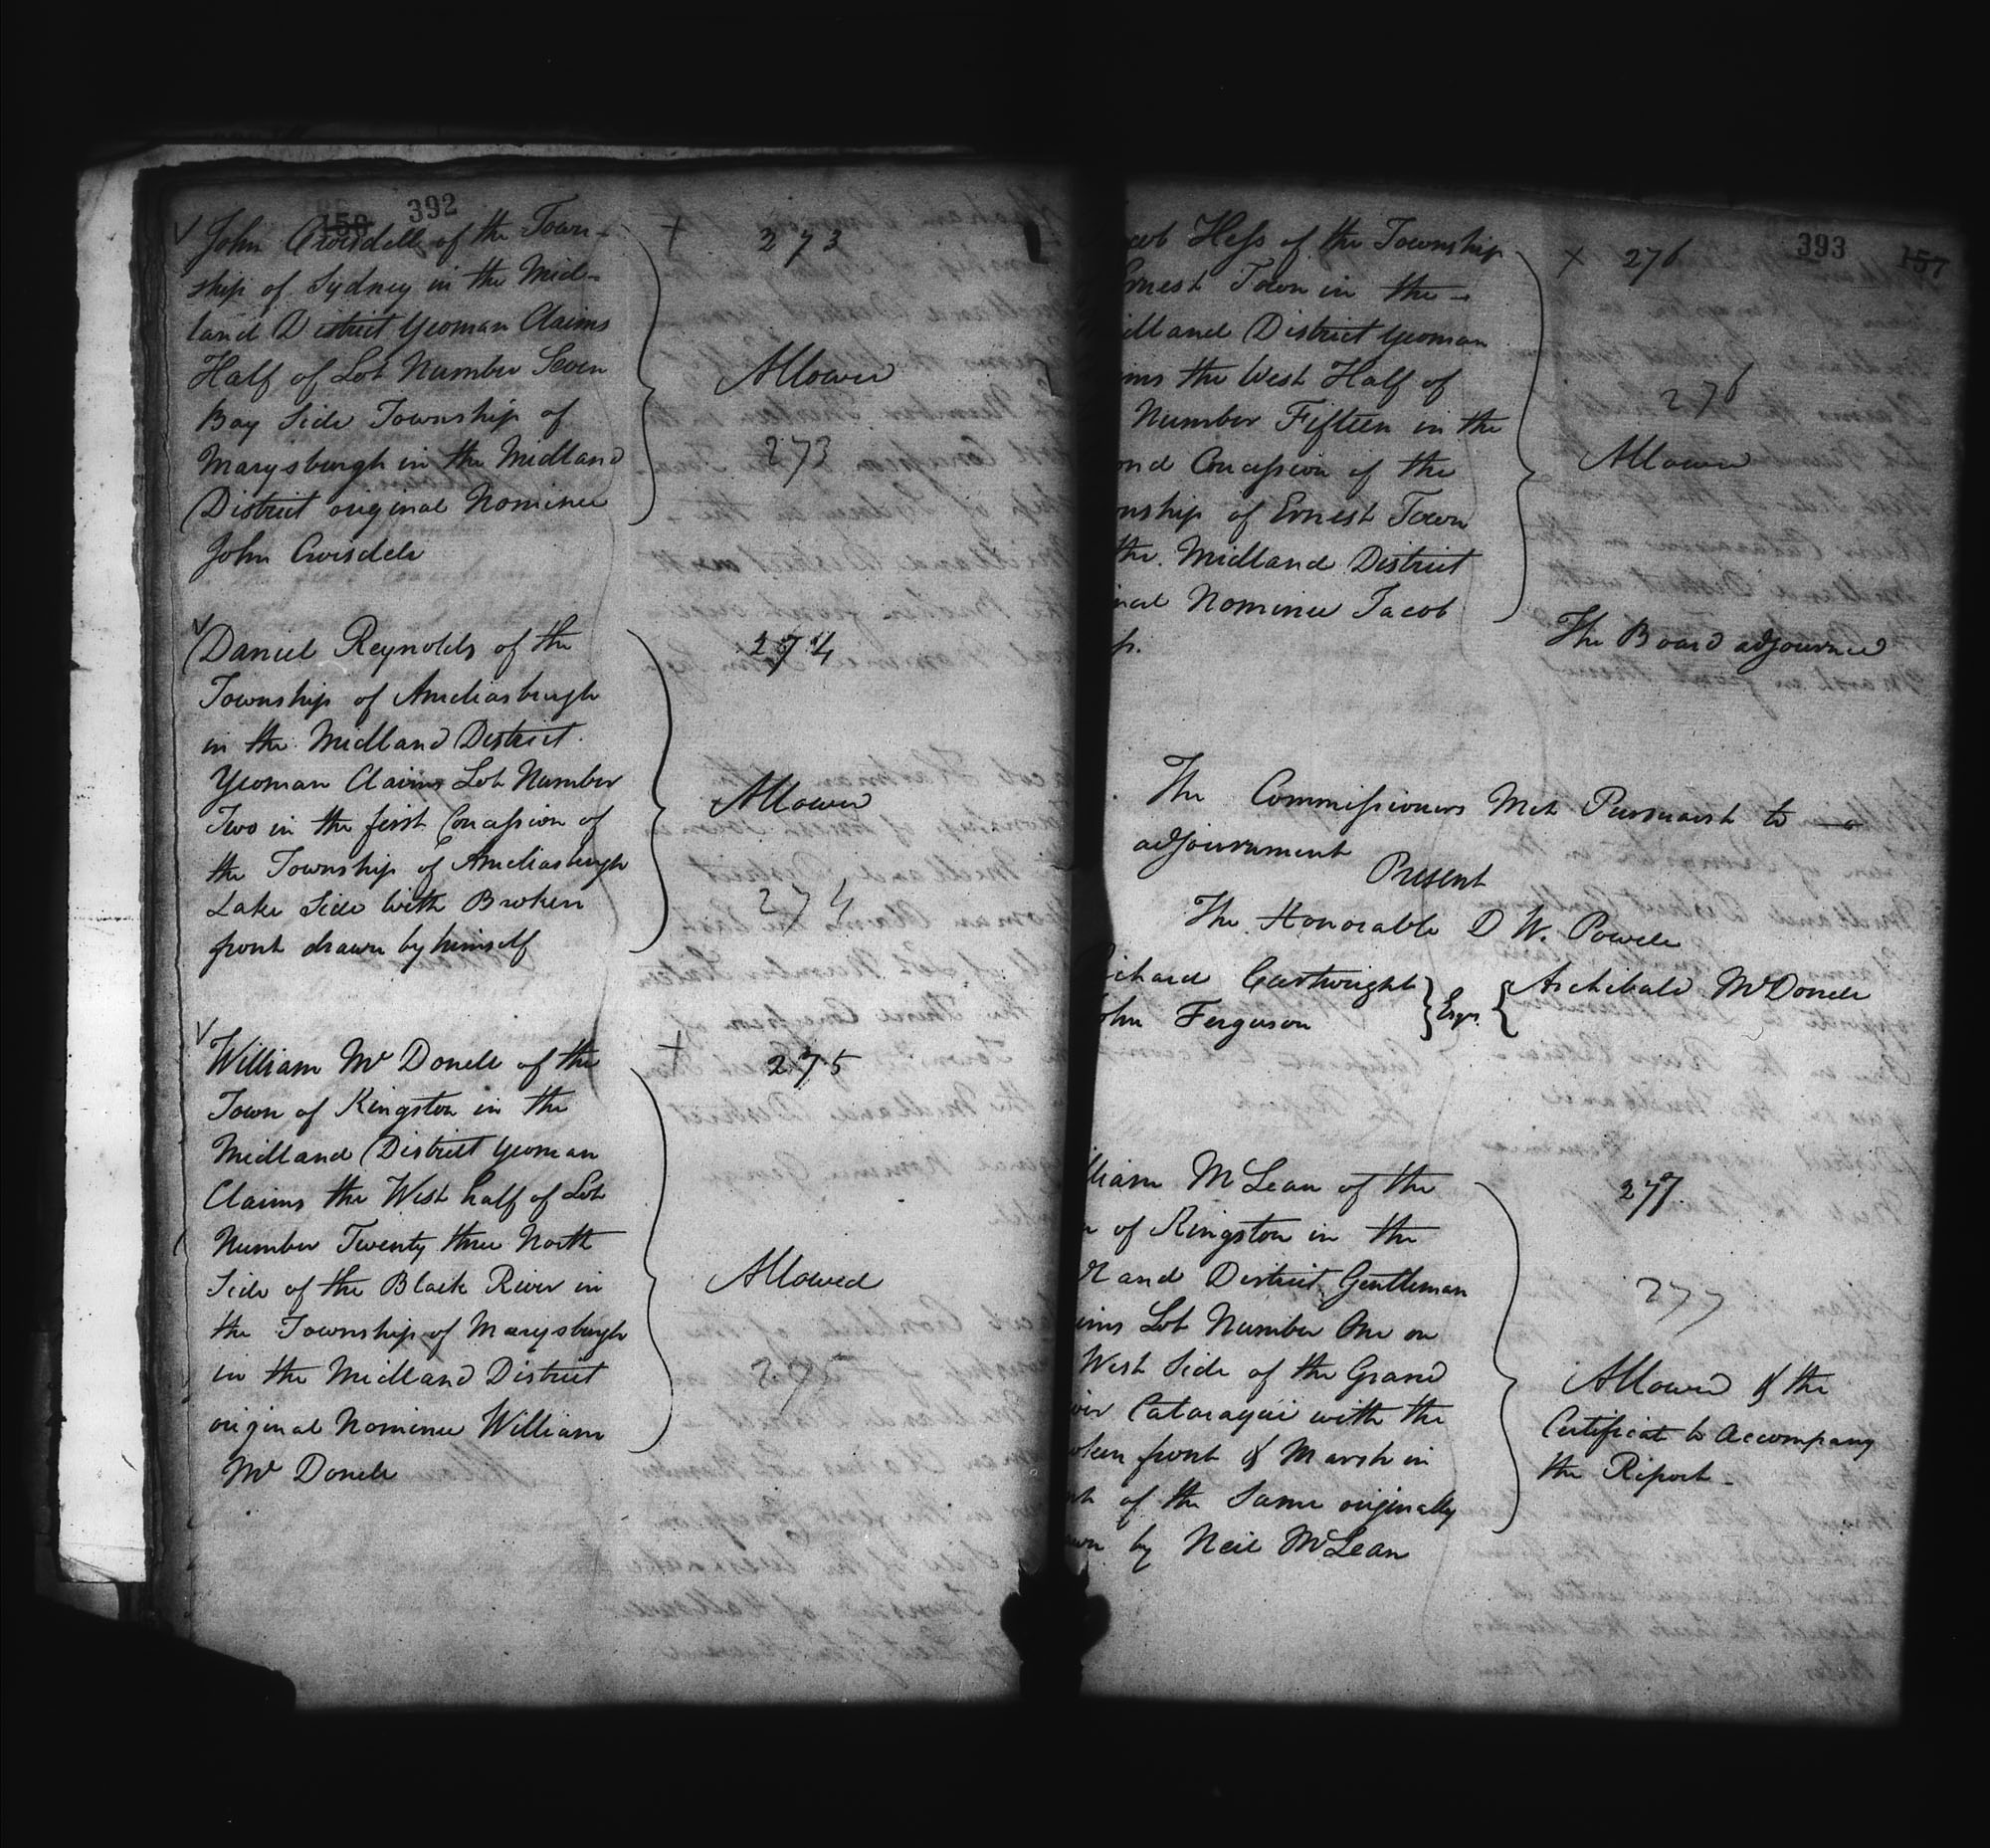 392
John Crwisdell of the Town-
ship of Sydney in the Mid-
land District Yeoman Claims
Half of Lot Number Seven
Bay Side Township of
Marysburgh in the Midland
District original Nominee
John Crwisdele
+ 273
Allowed
273
Daniel Reynolds of the
Township of Ameliasburgh
in the Midland District.
Yeoman Claims Lot Number
Two in the first Concession of
the Township of Ameliasburgh
Lake Side with Broken
front drawn by himself
274
Allowed
274
William Mc Donell of the
Town of Kingston in the
Midland District Yeoman
Claims the West half of Lot
Number Twenty three North
Side of the Black River in
the Township of Marysburgh
in the Midland District
original Nominee William
Mc Donele
+ 275
Allowed
275
393 157
cob Hess of the Township
Ernest Town in the -
idland District Yeoman
ims the West Half of
Number Fifteen in the
ond Concession of the
nship of Ernest Town
the Midland District
inal Nominee Jacob
ss.
x 276
276
Allowed
The Board adjourned
The Commissioners Met Pursuant to
adjournment
Present
The Honorable D W. Powele
ichard Cartwright
ohn Ferguson
Esqrs.
Archibald McDonele
lliam McLean of the
n of Kingston in the
land District Gentleman
ims Lot Number One on
West Side of the Grand
iver Cataraqui with the
oken front & Marsh in
nt of the Same originally
awn by Neil McLean
277
277
Allowed & the
Certificate to Accompany
the Report -